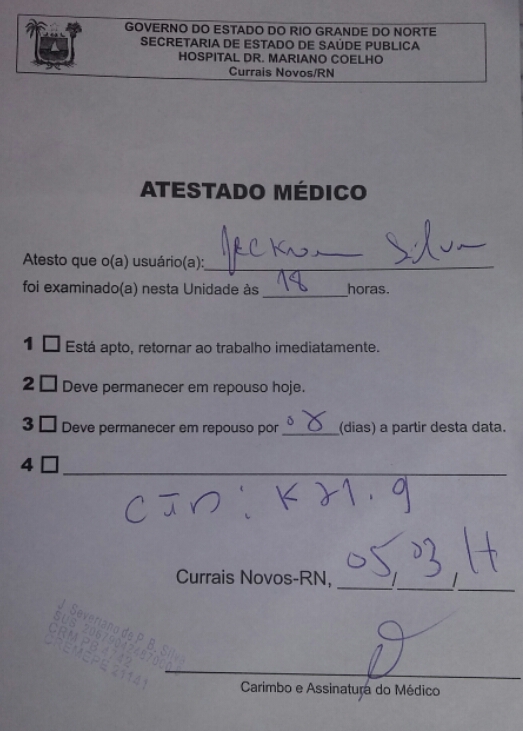 GOVERNO DO ESTADO DO RIO GRANDE DO NORTE
SECRETARIA DE ESTADO DE SAÚDE PUBLICA
HOSPITAL DR. MARIANO COELHO
Currais Novos/RN
ATESTADO MÉDICO
Atesto que o(a) usuário(a): Silva
foi examinado(a) nesta Unidade às 18 horas.
1 Está apto, retornar ao trabalho imediatamente.
2 Deve permanecer em repouso hoje.
3 Deve permanecer em repouso por (dias) a partir desta data.
4
CID: K21.9
Currais Novos-RN, 05/03/
J. Severiano de P. B. Silva
CRM PB
CREMEPE 21141
Carimbo e Assinatura do Médico